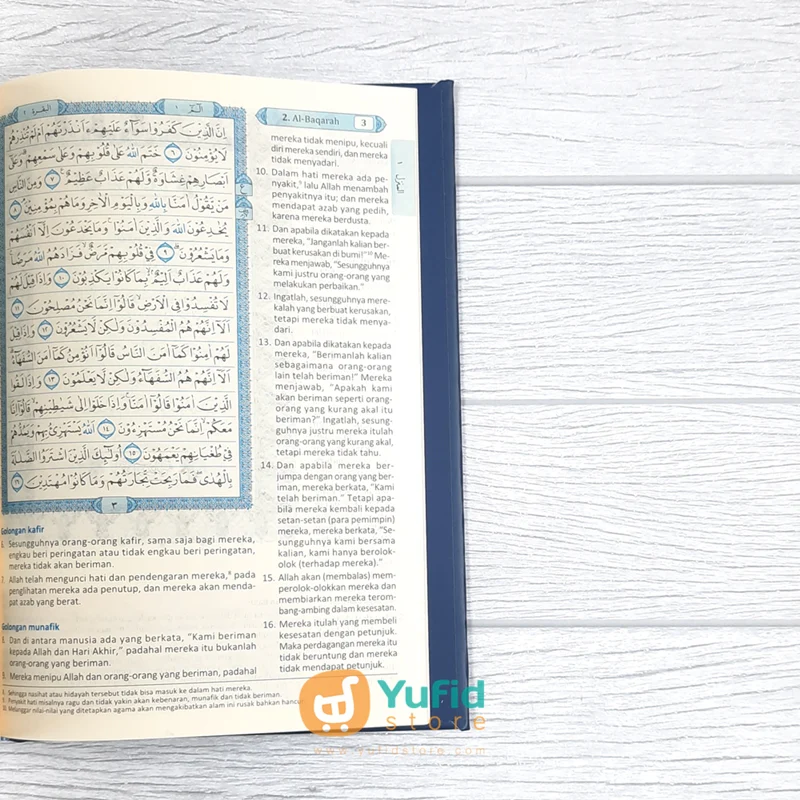 البقرة ٢
الٓمّٓ ١
اِنَّ الَّذِيْنَ كَفَرُوْا سَوَاۤءٌ عَلَيْهِمْ ءَاَنْذَرْتَهُمْ اَمْ لَمْ تُنْذِرْهُمْ
لَا يُؤْمِنُوْنَ ٦ خَتَمَ اللّٰهُ عَلٰى قُلُوْبِهِمْ وَعَلٰى سَمْعِهِمْ وَعَلٰٓى
اَبْصَارِهِمْ غِشَاوَةٌ وَّلَهُمْ عَذَابٌ عَظِيْمٌ ٧ وَمِنَ النَّاسِ
مَنْ يَّقُوْلُ اٰمَنَّا بِاللّٰهِ وَبِالْيَوْمِ الْاٰخِرِ وَمَا هُمْ بِمُؤْمِنِيْنَ ٨
يُخٰدِعُوْنَ اللّٰهَ وَالَّذِيْنَ اٰمَنُوْا وَمَا يَخْدَعُوْنَ اِلَّآ اَنْفُسَهُمْ
وَمَا يَشْعُرُوْنَ ٩ فِيْ قُلُوْبِهِمْ مَّرَضٌ فَزَادَهُمُ اللّٰهُ مَرَضًا
وَلَهُمْ عَذَابٌ اَلِيْمٌ بِمَا كَانُوْا يَكْذِبُوْنَ ١٠ وَاِذَا قِيْلَ لَهُمْ
لَا تُفْسِدُوْا فِى الْاَرْضِ قَالُوْٓا اِنَّمَا نَحْنُ مُصْلِحُوْنَ ١١
اَلَآ اِنَّهُمْ هُمُ الْمُفْسِدُوْنَ وَلٰكِنْ لَّا يَشْعُرُوْنَ ١٢ وَاِذَا قِيْلَ
لَهُمْ اٰمِنُوْا كَمَآ اٰمَنَ النَّاسُ قَالُوْٓا اَنُؤْمِنُ كَمَآ اٰمَنَ السُّفَهَاۤءُ
اَلَآ اِنَّهُمْ هُمُ السُّفَهَاۤءُ وَلٰكِنْ لَّا يَعْلَمُوْنَ ١٣ وَاِذَا لَقُوا
الَّذِيْنَ اٰمَنُوْا قَالُوْٓا اٰمَنَّا وَاِذَا خَلَوْا اِلٰى شَيٰطِيْنِهِمْ قَالُوْٓا اِنَّا
مَعَكُمْ اِنَّمَا نَحْنُ مُسْتَهْزِءُوْنَ ١٤ اَللّٰهُ يَسْتَهْزِئُ بِهِمْ وَيَمُدُّهُمْ
فِيْ طُغْيَانِهِمْ يَعْمَهُوْنَ ١٥ اُولٰۤىِٕكَ الَّذِيْنَ اشْتَرَوُا الضَّلٰلَةَ
بِالْهُدٰى فَمَا رَبِحَتْ تِّجَارَتُهُمْ وَمَا كَانُوْا مُهْتَدِيْنَ ١٦
٣
Golongan kafir
6. Sesungguhnya orang-orang kafir, sama saja bagi mereka,
engkau beri peringatan atau tidak engkau beri peringatan,
mereka tidak akan beriman.
7. Allah telah mengunci hati dan pendengaran mereka,⁸ pada
penglihatan mereka ada penutup, dan mereka akan menda-
pat azab yang berat.
Golongan munafik
8. Dan di antara manusia ada yang berkata, "Kami beriman
kepada Allah dan Hari Akhir," padahal mereka itu bukanlah
orang-orang yang beriman.
9. Mereka menipu Allah dan orang-orang yang beriman, padahal
2. Al-Baqarah 3
mereka tidak menipu, kecuali
diri mereka sendiri, dan mereka
tidak menyadari.
10. Dalam hati mereka ada pe-
nyakit,⁹ lalu Allah menambah
penyakitnya itu; dan mereka
mendapat azab yang pedih,
karena mereka berdusta.
11. Dan apabila dikatakan kepada
mereka, "Janganlah kalian ber-
buat kerusakan di bumi!"¹⁰ Me-
reka menjawab, "Sesungguhnya
kami justru orang-orang yang
melakukan perbaikan."
12. Ingatlah, sesungguhnya mere-
kalah yang berbuat kerusakan,
tetapi mereka tidak menya-
dari.
13. Dan apabila dikatakan kepada
mereka, "Berimanlah kalian
sebagaimana orang-orang
lain telah beriman!" Mereka
menjawab, "Apakah kami
akan beriman seperti orang-
orang yang kurang akal itu
beriman?" Ingatlah, sesung-
guhnya justru mereka itulah
orang-orang yang kurang akal,
tetapi mereka tidak tahu.
14. Dan apabila mereka ber-
jumpa dengan orang yang ber-
iman, mereka berkata, "Kami
telah beriman." Tetapi apa-
bila mereka kembali kepada
setan-setan (para pemimpin)
mereka, mereka berkata, "Se-
sungguhnya kami bersama
kalian, kami hanya berolok-
olok (terhadap mereka)."
15. Allah akan (membalas) mem-
perolok-olokkan mereka dan
membiarkan mereka terom-
bang-ambing dalam kesesatan.
16. Mereka itulah yang membeli
kesesatan dengan petunjuk.
Maka perdagangan mereka itu
tidak beruntung dan mereka
tidak mendapat petunjuk.
المنزل ١
8. Sehingga nasihat atau hidayah tersebut tidak bisa masuk ke dalam hati mereka.
9. Penyakit hati misalnya ragu dan tidak yakin akan kebenaran, munafik dan tidak beriman.
10. Melanggar nilai-nilai yang ditetapkan agama akan mengakibatkan alam ini rusak bahkan hancur
Yufid
store
www.yufidstore.com